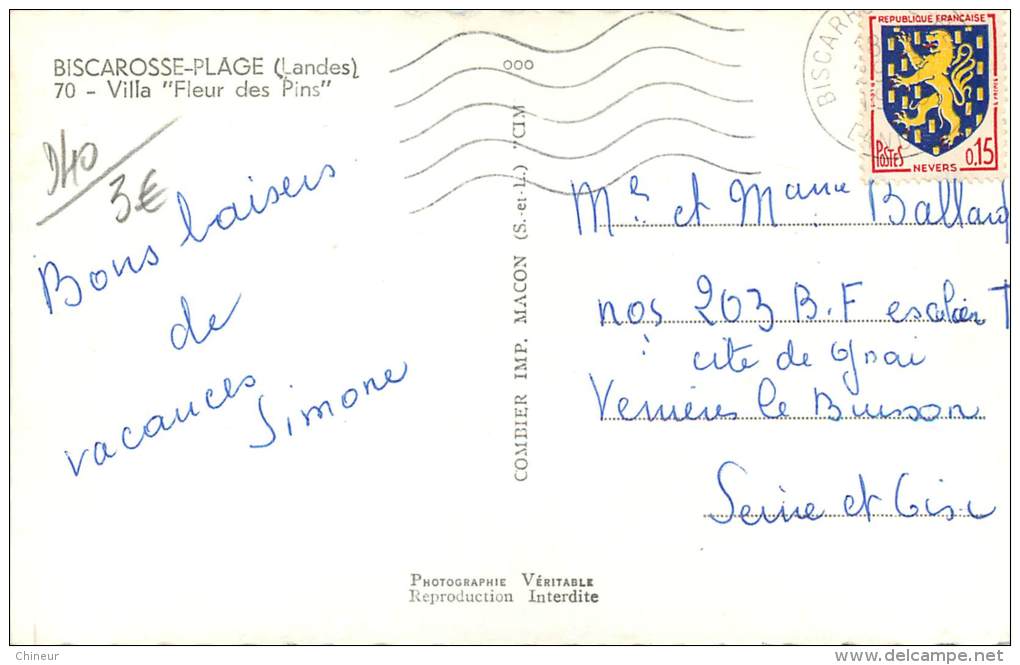 BISCAROSSE-PLAGE (Landes)
70 - Villa "Fleur des Pins"
D40
3€
Bons baisers
de
vacances
Simone
COMBIER IMP. MACON (S.-et-L.) "CIM
000
BISCARR
REPUBLIQUE FRANÇAISE
POSTES
0,15
NEVERS
Mr et Mame Ballard
nos 203 B.F escalier T
cité de
Verrières le Buisson
Seine et Oise
PHOTOGRAPHIE VÉRITABLE
Reproduction Interdite
Chineur
delcampe.net